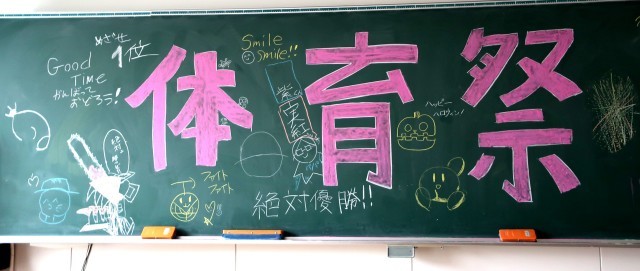 めざせ
1位
Good
Time
がんばって
おどろう!
体育祭
Smile
smile!!
ハッピー
ハロウィン!
絶対
ファイト
ファイト
絶対優勝!!